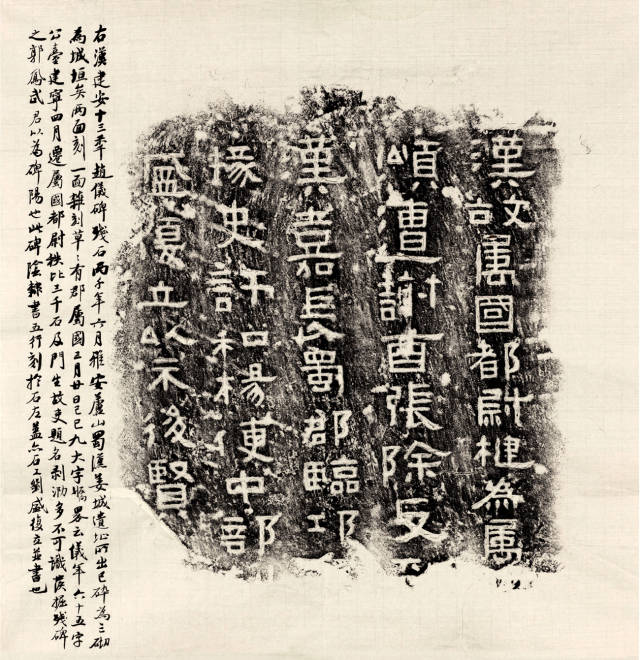 漢故屬國都尉楗為屬
頌遭謝酉張除反
漢嘉長蜀郡臨邛
掾史許和楊便中部
盛復立以示後賢
右漢建安十三年趙儀碑殘石丙子年六月雅安蘆山蜀漢姜城遺址所出已碎為三砌
為城垣矣兩面刻一面雜刻草〻有郡屬國三月廿日己巳九大字云儀年六十五字
公臺建寧四月遷屬國都尉秩比二千石及門生故吏題名剥泐多不可識殘碑
之郭鳳武君以為碑陽也此碑陰隸書五行刻於石左蓋亦石工劉盛復立並書也